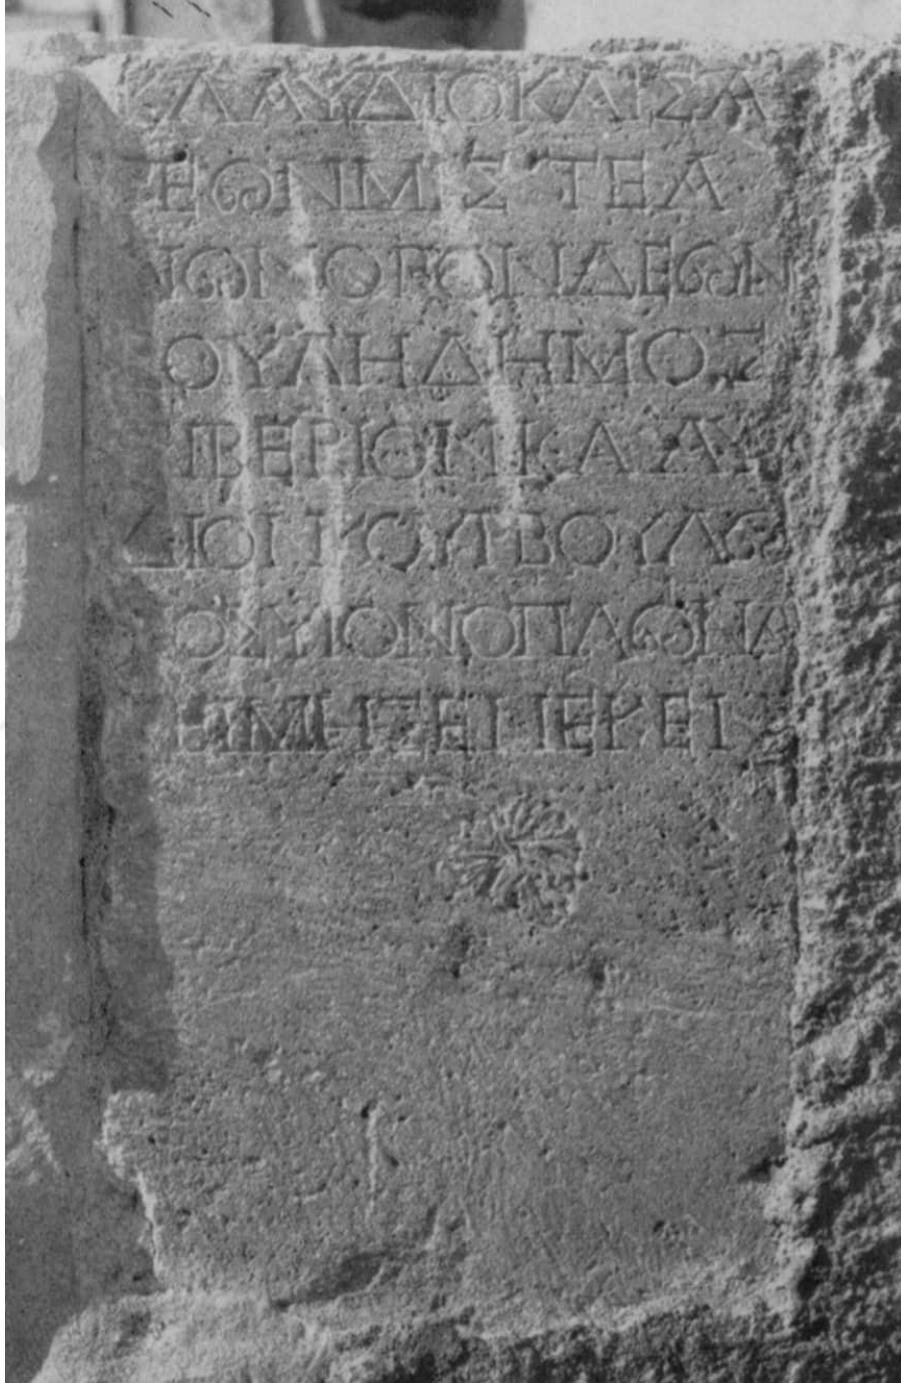 ΚΛΑΥΔΙΟΚΑΙΣΑ
ΕΩΝΜΙΣ ΤΕΑ
ΝΩΝΟΡΟΝΔΕΩΝ
ΟΥΛΗΔΗΜΟΣ
ΙΒΕΡΙΟΝΚΛΑΥ
ΔΙΟΝΚΟΥΡΒΟΥΛΩ
ΟΣΥΙΟΝΟΠΛΩΝΑ
ΕΙΜΗΣΕΝΕΚΕΝ